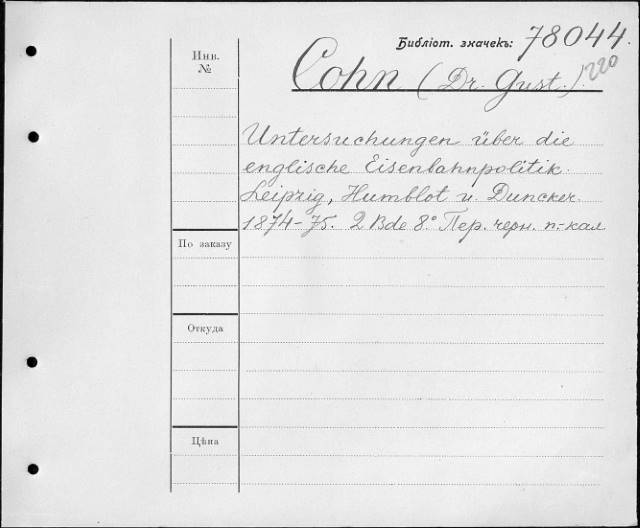 Библіот. значекъ: 78044.
Инв. №
Cohn (Dr. Gust.) 220
Untersuchungen über die
englische Eisenbahnpolitik.
Leipzig, Humblot u. Duncker.
1874-75. 2 Bde 8.° Пер. черн. п.-кал
По заказу
Откуда
Цѣна